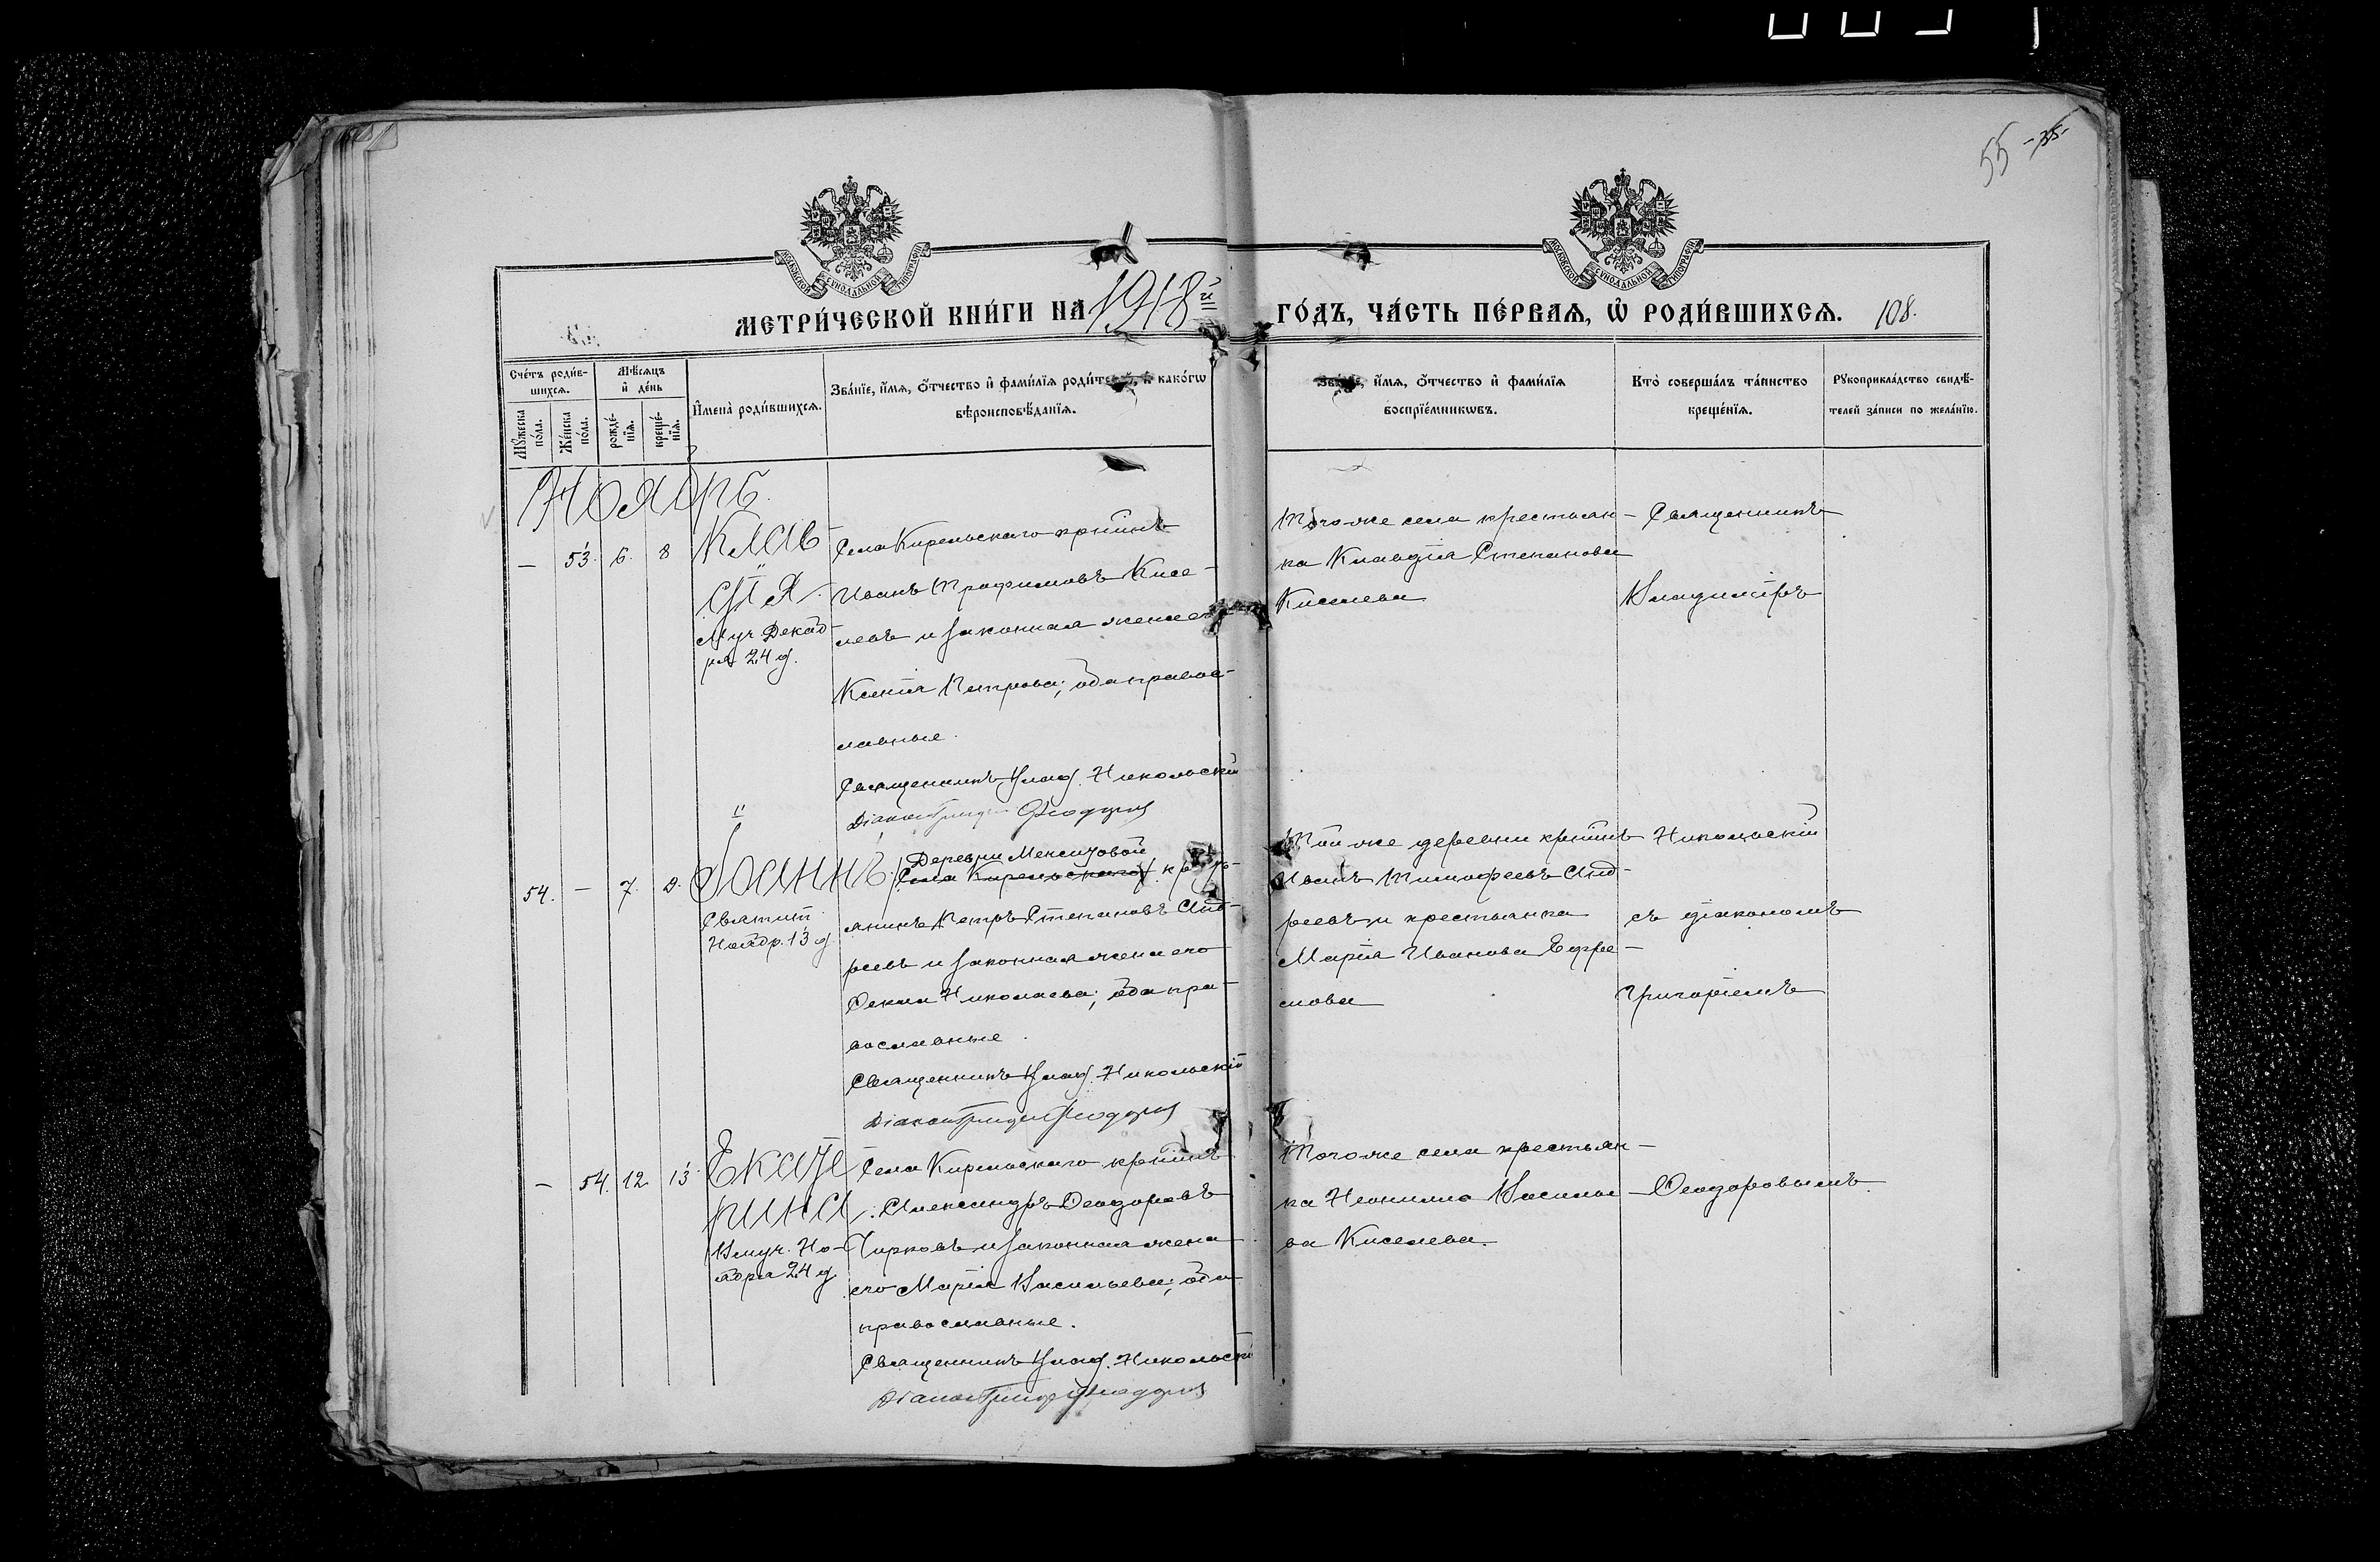 55 -35-
МЕТРИ́ЧЕСКОЙ КНИ́ГИ НА 1918й ГО́ДЪ, ЧА́СТЬ ПЕ́РВАЯ, Ѡ РОДИ́ВШИХСЯ. 108.
Сче́тъ роди́в-
шихся.
Мꙋ́жеска по́ла.
Же́нска по́ла.
Мѣ́сяцъ
и҆ де́нь
рожде́-
нїя.
креще́-
нїя.
И҆мена̀ роди́вшихся.
Зва́нїе, и҆́мя, ѻ҆́тчество и҆ фами́лїя роди́телей, и҆ како́гѡ
вѣроисповѣ́данїя.
Зва́нїе, и҆́мя, ѻ҆́тчество и҆ фами́лїя
воспрїе́мникѡвъ.
Кто̀ соверша́лъ та́инство
креще́нїя.
Рꙋкоприкла́дство свидѣ́-
телей за́писи по жела́нїю.
Ноябрь
— 53. 6. 8
Клав-
дія.
Муч. Декаб-
ря 24 д.
Села Кирельскаго кр-нинъ
Иванъ Трофимовъ Кисе-
левъ и законная жена его
Ксенія Петрова; оба правос-
лавные.
Священникъ Влад. Никольскій
Тогоже села крестьян-
ка Клавдія Степанова
Киселева
Священникъ
Владиміръ
54. — 7. 8.
Іоаннъ.
Святит.
Ноябр. 13 д.
Деревни
Села Кирельскаго кресть-
янинъ Петръ Степановъ Анд-
реевъ и законная жена его
Ѳекла Николаева; оба пра-
вославные.
Священникъ Влад. Никольскій
Той же деревни кр-нинъ
Иванъ Тимофеевъ Анд-
реевъ и крестьянка
Марія Иванова Ефре-
мова
Никольскій
съ діакономъ
Григоріемъ
— 54. 12. 13.
Екате
рина.
Вмуч. Но-
ября 24 д.
Села Кирельскаго кр-нинъ
Александръ Ѳеодоровъ
Чирковъ и законная жена
его Марія Васильева; оба
православные.
Священникъ Влад. Никольскій
Тогоже села крестьян-
ка Неонилла Василье-
ва Киселева.
Ѳеодоровымъ.